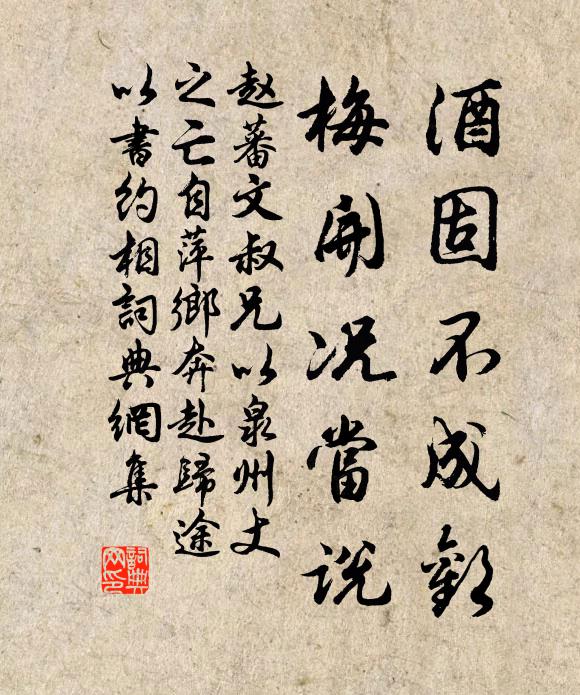 酒固不成歡
梅開况當説
赵蕃文叔兄以泉州丈
之亡自萍鄉奔赴歸途
以書約相詞典網集
詞典
网印